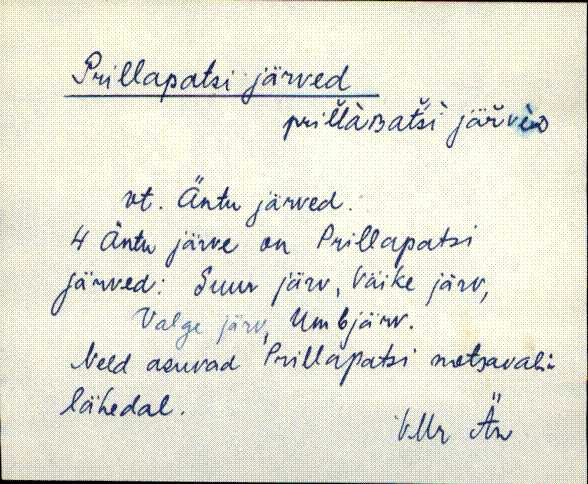 Prillapatsi järved
prillàʙatši järveᴅ
vt. Äntu järved.
4 Äntu järve on Prillapatsi
järved: Suur järv, Väike järv,
Valge järv, Umbjärv.
Need asuvad Prillapatsi metsavahi
lähedal.
VMr Än